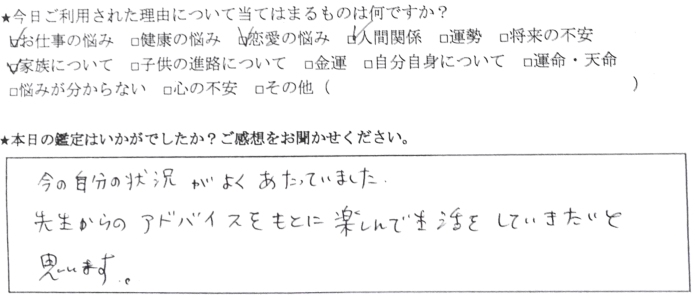 ★今日ご利用された理由について当てはまるものは何ですか？
☑お仕事の悩み □健康の悩み ☑恋愛の悩み ☑人間関係 □運勢 □将来の不安
☑家族について □子供の進路について □金運 □自分自身について □運命・天命
□悩みが分からない □心の不安 □その他（　　　　　　　　　　）
★本日の鑑定はいかがでしたか？ご感想をお聞かせください。
今の自分の状況がよくあたっていました.
先生からのアドバイスをもとに楽しんで生活をしていきたいと
思います。